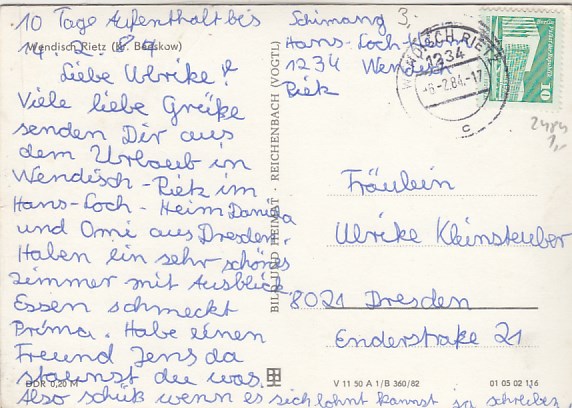 10 Tage Aufenthalt bis
14. 2. 84
Wendisch Rietz (Kr. Beeskow)
Liebe Ulrike!
Viele liebe Grüße
senden Dir aus
dem Urlaub in
Wendisch-Rietz im
Hans-Loch-Heim Danila
und Omi aus Dresden.
Haben ein sehr schönes
Zimmer mit Ausblick.
Essen schmeckt
Prima. Habe einen
Freund Jens da
staunst du was.
Also schüß wenn es sich lohnt kannst ja schreiben
DDR 0,20 M
BILD UND HEIMAT · REICHENBACH (VOGTL)
Schimang
Hans-Loch-Heim
1234 Wendisch
Rietz
3,
WENDISCH RIETZ
1234
-6.-2.84.-17
c
DDR
10
2484
1,-
Fräulein
Ulrike Kleinsteuber
8021 Dresden
Enderstraße 21
V 11 50 A 1/B 360/82
01 05 02 116